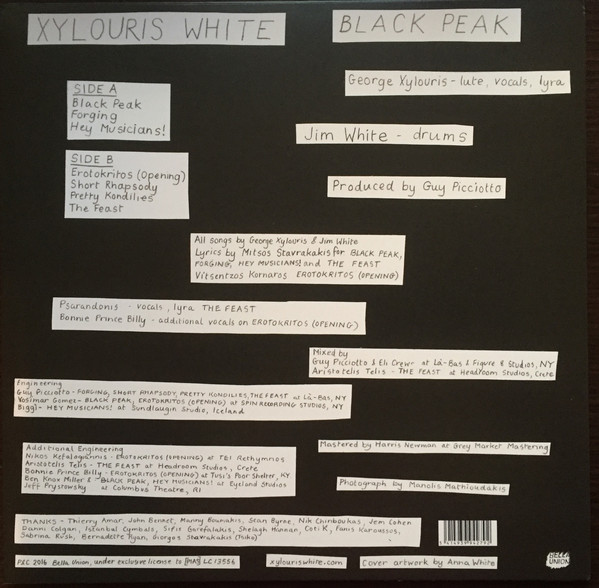 XYLOURIS WHITE
BLACK PEAK
George Xylouris - lute, vocals, lyra
SIDE A
Black Peak
Forging
Hey Musicians!
Jim White - drums
SIDE B
Erotokritos (Opening)
Short Rhapsody
Pretty Kondilies
The Feast
Produced by Guy Picciotto
All songs by George Xylouris & Jim White
Lyrics by Mitsos Stavrakakis for BLACK PEAK,
FORGING, HEY MUSICIANS! and THE FEAST
Vitsentzos Kornaros EROTOKRITOS (OPENING)
Psarandonis - vocals, lyra THE FEAST
Bonnie Prince Billy - additional vocals on EROTOKRITOS (OPENING)
Mixed by
Guy Picciotto & Eli Crews at Là-Bas & Figure 8 Studios, NY
Aristotelis Telis - THE FEAST at Headroom Studios, Crete
Engineering
Guy Picciotto - FORGING, SHORT RHAPSODY, PRETTY KONDILIES, THE FEAST at Là-Bas, NY
Yosimar Gomez - BLACK PEAK, EROTOKRITOS (OPENING) at SPIN RECORDING STUDIOS, NY
Biggi - HEY MUSICIANS! at Sundlaugin Studio, Iceland
Additional Engineering
Nikos Kefalogiannis - EROTOKRITOS (OPENING) at TEI Rethymnos
Aristotelis Telis - THE FEAST at Headroom Studios, Crete
Bonnie Prince Billy - EROTOKRITOS (OPENING) at Tusi's Poor Shelter, KY
Ben Knox Miller & BLACK PEAK, HEY MUSICIANS! at Eyeland Studios
Jeff Prystowsky at Columbus Theatre, RI
Mastered by Harris Newman at Grey Market Mastering
Photograph by Manolis Mathioudakis
THANKS - Thierry Amar, John Bennet, Manny Bounakis, Sean Byrne, Nik Chinboukas, Jem Cohen
Danni Colgan, Istanbul Cymbals, Sifis Garefalakis, Shelagh Hannan, Coti K, Fanis Karoussos,
Sabrina Rush, Bernadette Ryan, Giorgos Stavrakakis (Tsika)
P&C 2016 Bella Union, under exclusive license to [PIAS] LC 13556
xylouriswhite.com
Cover artwork by Anna White
BELLA
UNION